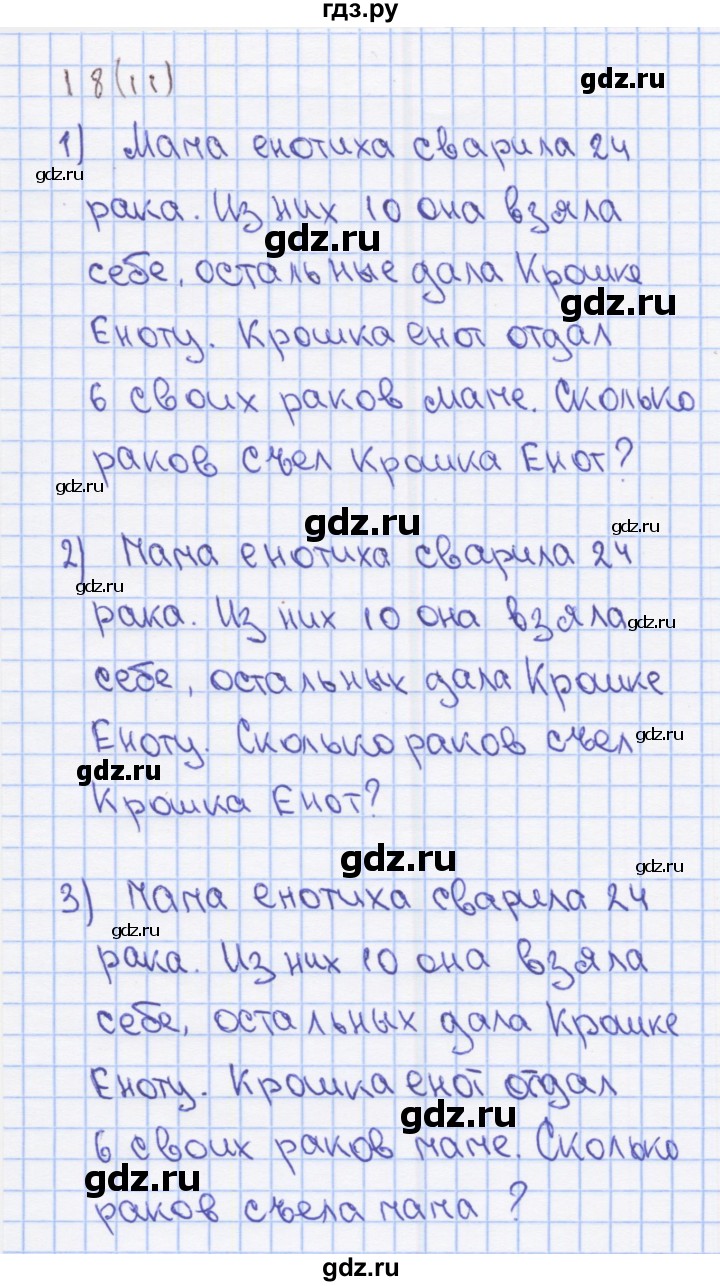 гдз.ру
18(11)
gdz.ru
1) Мама енотиха сварила 24
gdz.ru
рака. Из них 10 она взяла
gdz.ru
себе, остальные дала Крошке
gdz.ru
Еноту. Крошка енот отдал
6 своих раков маме. Сколько
раков съел Крошка Енот?
gdz.ru
gdz.ru
gdz.ru
2) Мама енотиха сварила 24
gdz.ru
рака. Из них 10 она взяла
gdz.ru
себе, остальных дала Крошке
Еноту. Сколько раков съел
gdz.ru
gdz.ru
Крошка Енот?
gdz.ru
gdz.ru
3) Мама енотиха сварила 24
gdz.ru
рака. Из них 10 она взяла
себе, остальных дала Крошке
Еноту. Крошка енот отдал
gdz.ru
6 своих раков маме. Сколько
gdz.ru
раков съела мама ?
gdz.ru